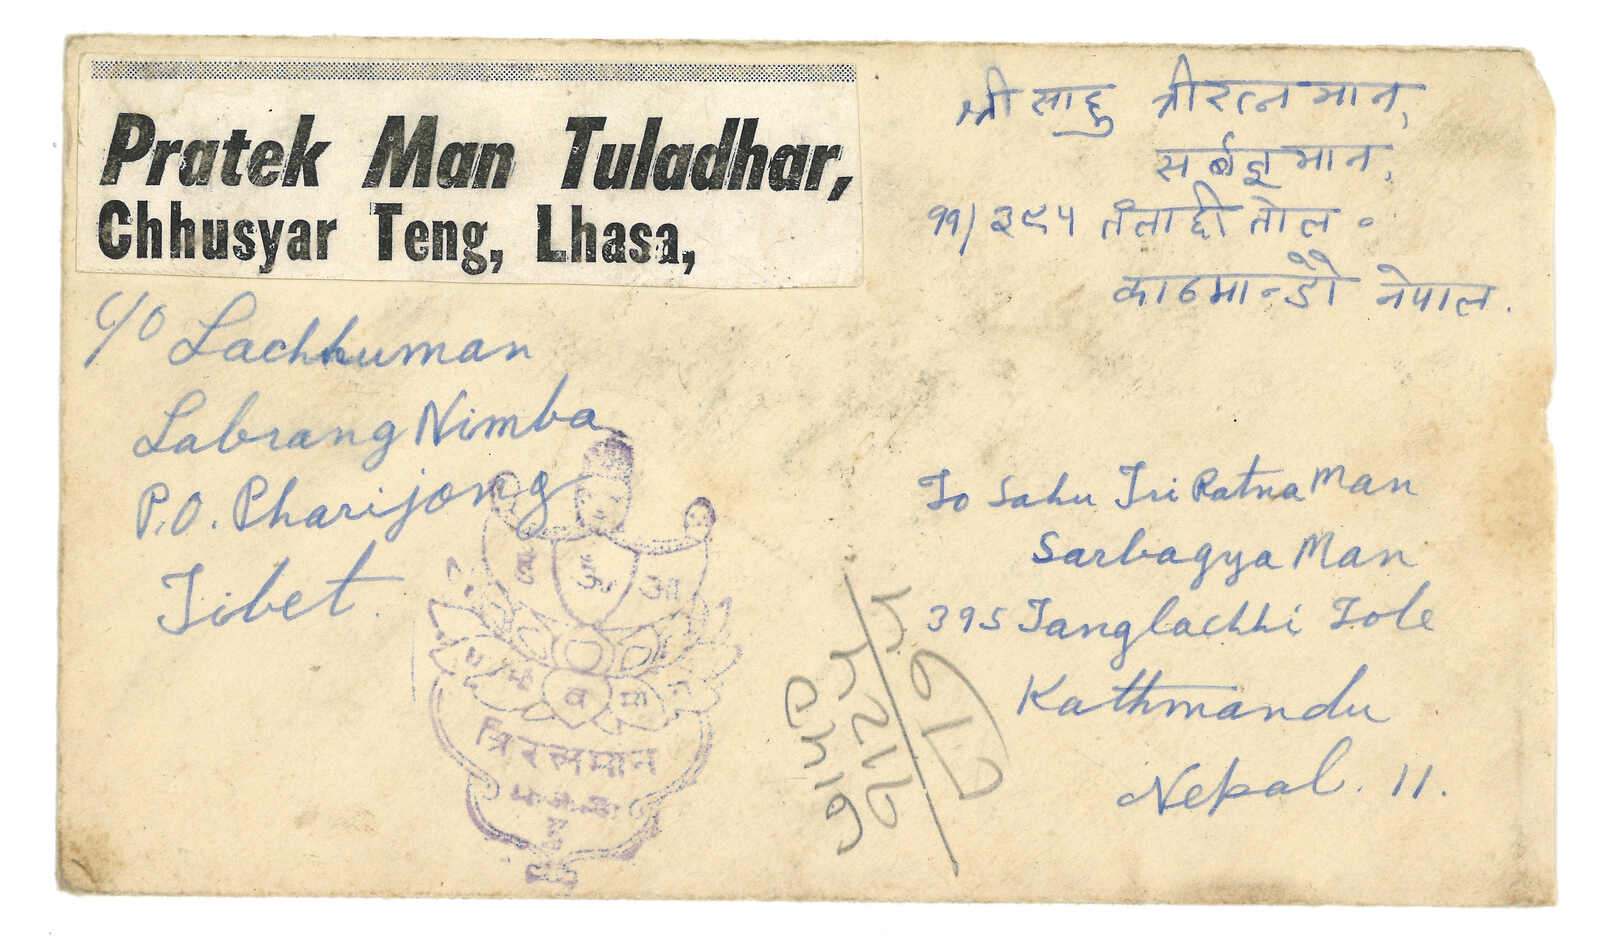 Pratek Man Tuladhar,
Chhusyar Teng, Lhasa,
C/O Lachhuman
Labrang Nimba
P.O. Pharijong
Tibet.
श्री साहु त्रीरत्न मान,
सर्बज्ञ मान,
११/३९५ तंलाछी तोल॰
काठमान्डौ नेपाल.
To Sahu Tri Ratna Man
Sarbagya Man
395 Tanglachhi Tole
Kathmandu
Nepal. 11.
हुँ आ
त्रिरत्नमान